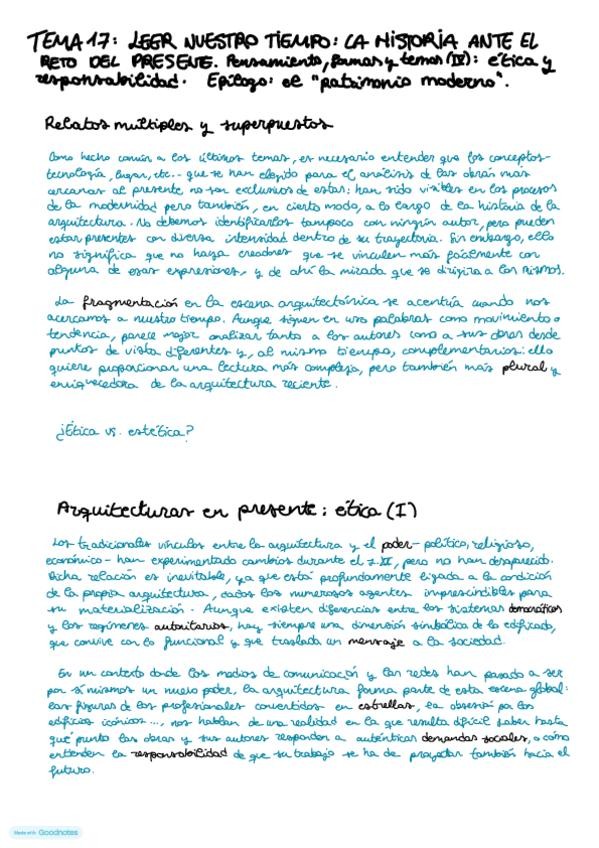 TEMA 17: LEER NUESTRO TIEMPO: LA HISTORIA ANTE EL
RETO DEL PRESENTE. Pensamiento, formas y temas (IV): ética y
responsabilidad. Epílogo: el "patrimonio moderno".
Relatos múltiples y superpuestos
Como hecho común a los últimos temas, es necesario entender que los conceptos-
tecnología, lugar, etc.- que se han elegido para el análisis de las obras más
cercanas al presente no son exclusivos de estas: han sido visibles en los procesos
de la modernidad pero también, en cierto modo, a lo largo de la historia de la
arquitectura. No debemos identificarlos tampoco con ningún autor, pero pueden
estar presentes con diversa intensidad dentro de su trayectoria. Sin embargo, ello
no significa que no haya creadores que se vinculen más fácilmente con
alguna de esas expresiones, y de ahí la mirada que se dirigirá a los mismos.
La fragmentación en la escena arquitectónica se acentúa cuando nos
acercamos a nuestro tiempo. Aunque siguen en uso palabras como movimiento o
tendencia, parece mejor analizar tanto a los autores como a sus obras desde
puntos de vista diferentes y, al mismo tiempo, complementarios: ello
quiere proporcionar una lectura más compleja, pero también más plural y
enriquecedora de la arquitectura reciente.
¿Ética vs. estética?
Arquitecturas en presente: ética (I)
Los tradicionales vínculos entre la arquitectura y el poder- político, religioso,
económico- han experimentado cambios durante el s. XX, pero no han desaparecido.
Dicha relación es inevitable, ya que está profundamente ligada a la condición
de la propia arquitectura, dados los numerosos agentes imprescindibles para
su materialización. Aunque existen diferencias entre los sistemas democráticos
y los regímenes autoritarios, hay siempre una dimensión simbólica de lo edificado,
que convive con lo funcional y que traslada un mensaje a la sociedad.
En un contexto donde los medios de comunicación y las redes han pasado a ser
por sí mismos un nuevo poder, la arquitectura forma parte de esta escena global:
las figuras de los profesionales convertidos en estrellas, la obsesión por los
edificios icónicos..., nos hablan de una realidad en la que resulta difícil saber hasta
qué punto las obras y sus autores responden a auténticas demandas sociales, o cómo
entienden la responsabilidad de que su trabajo se ha de proyectar también hacia el
futuro.
Made with Goodnotes